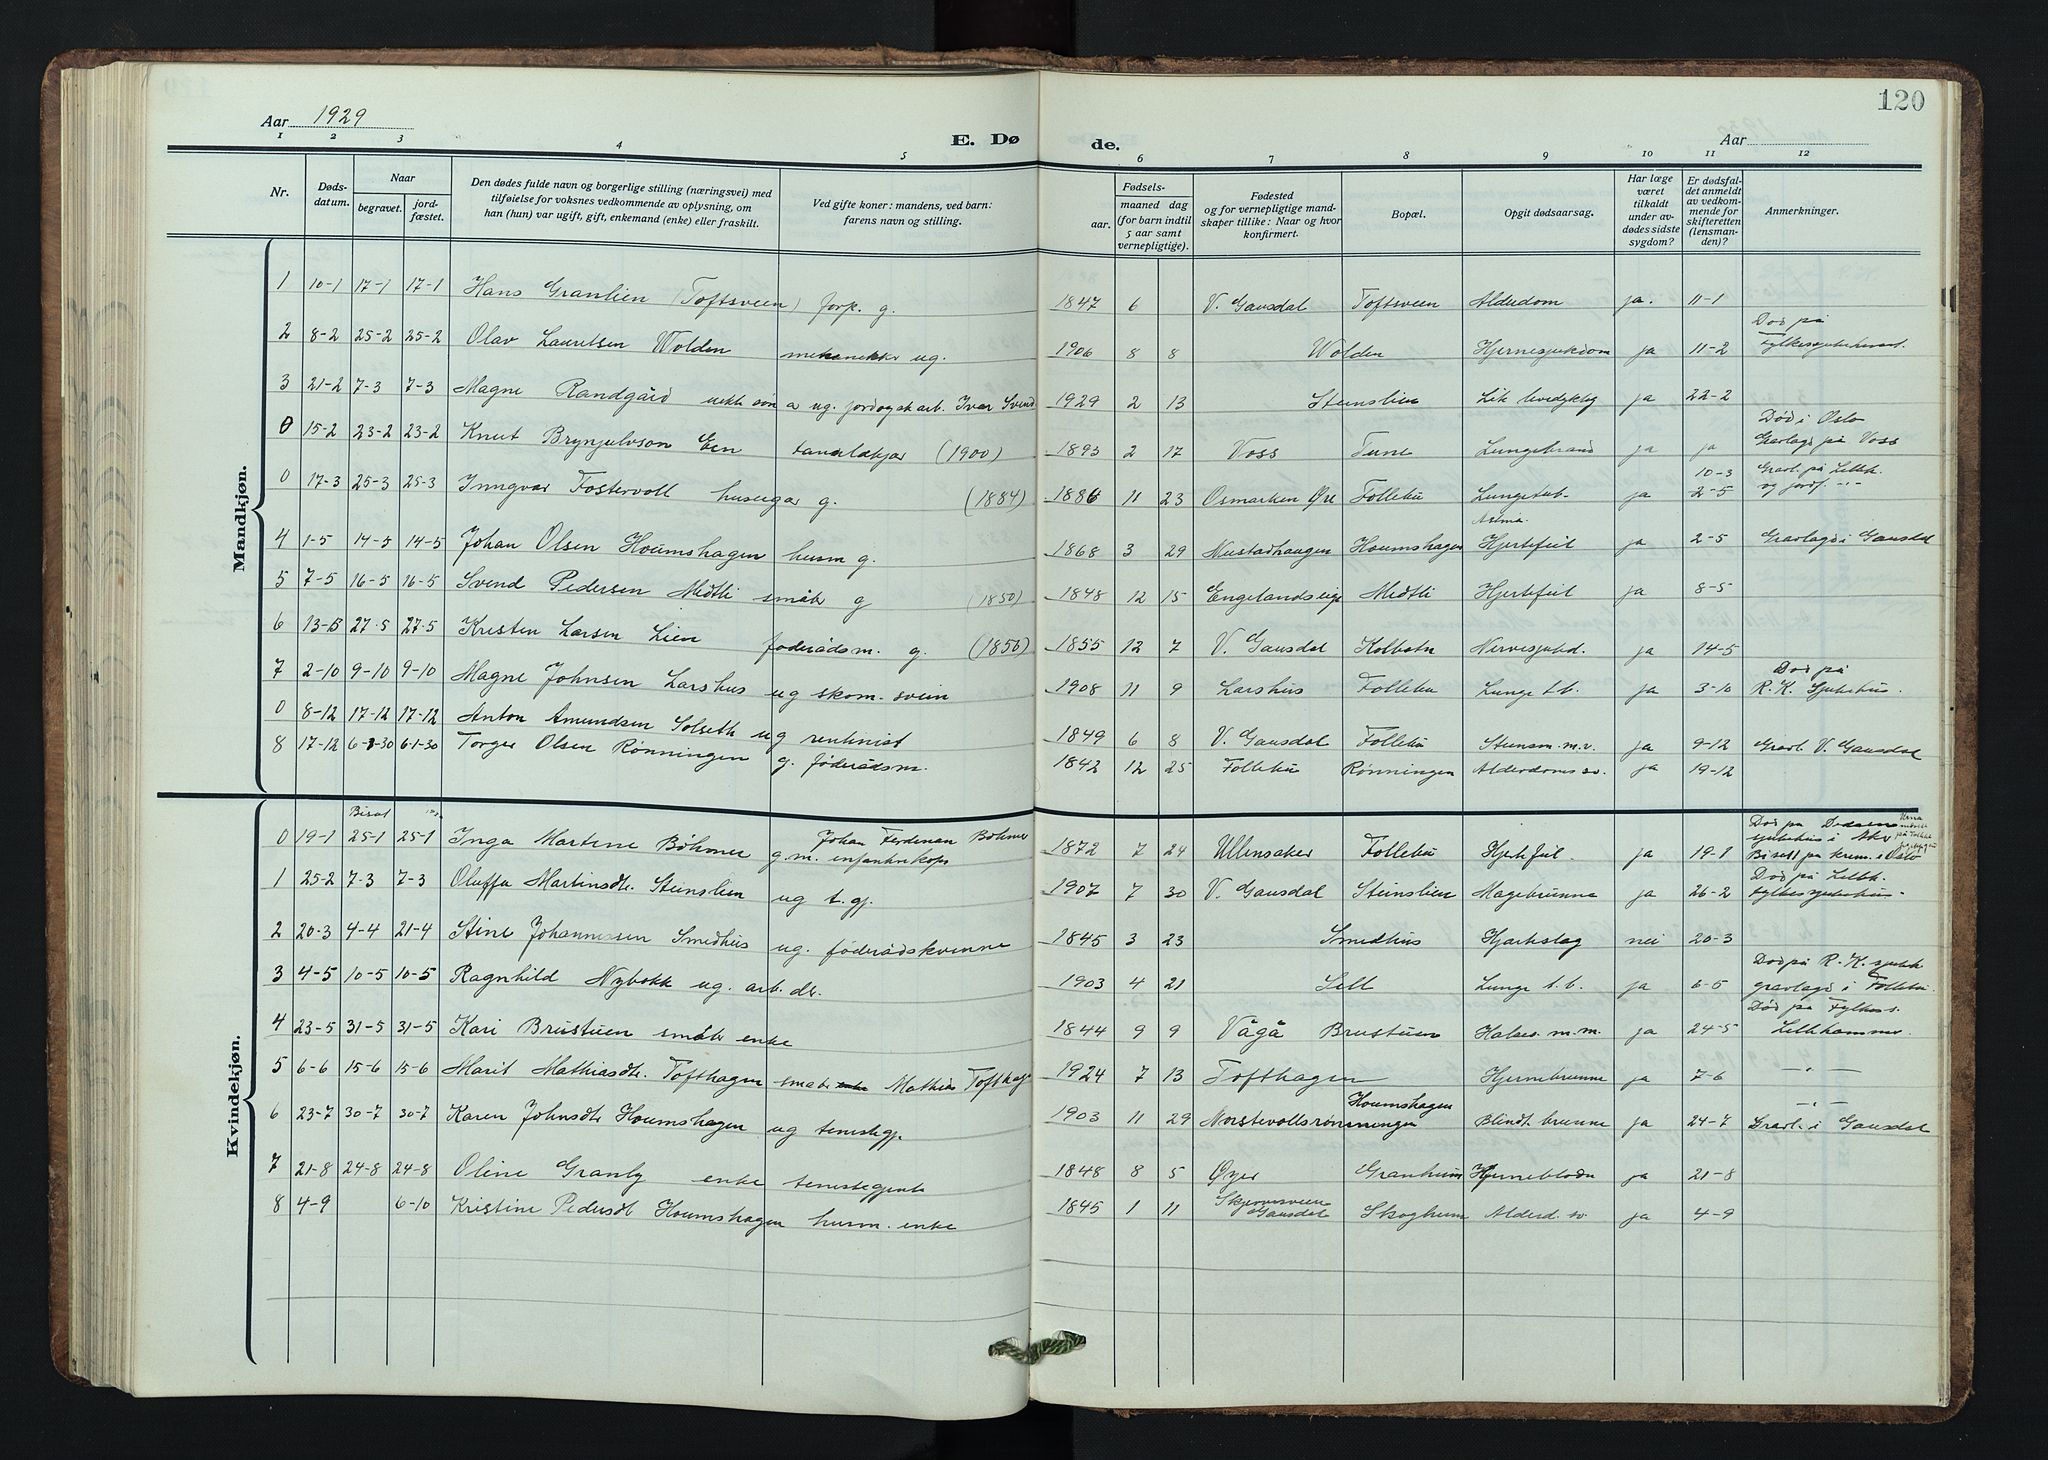 120
Aar 1929
E. Dø de.
Aar
1 2 3 4 5 6 7 8 9 10 11 12
Nr.
Døds-datum.
Naar
begravet.
jord-fæstet.
Den dødes fulde navn og borgerlige stilling (næringsvei) med
tilføielse for voksnes vedkommende av oplysning, om
han (hun) var ugift, gift, enkemand (enke) eller fraskilt.
Ved gifte koner: mandens, ved barn:
farens navn og stilling.
Fødsels-
aar.
maaned dag
(for barn indtil
5 aar samt
vernepligtige).
Fødested
og for vernepligtige mand-
skaper tillike: Naar og hvor
konfirmert.
Bopæl.
Opgit dødsaarsag.
Har læge
været
tilkaldt
under av-
dødes sidste
sygdom?
Er dødsfal-
det anmeldt
av vedkom-
mende for
skifteretten
(lensman-
den)?
Anmerkninger.
Mandkjøn.
1 10-1 17-1 17-1 Hans Granlien (Toftsveen) forp. g. 1847 6 V. Gausdal Toftsveen Alderdom ja. 11-1
2 8-2 25-2 25-2 Olav Lauritsen Wolden mekanekker ug. 1906 8 8 Wolden Hjernesjukdom ja 11-2 Død på
3 21-2 7-3 7-3 Magne Randgård uekte søn a ug. jordogsk.arb. Ivar Svend 1929 2 13 Steinslien ja 22-2
0 15-2 23-2 23-2 Knut Brynjulvson Een (1900) 1893 2 17 Voss Tune Lungebrand ja ja Død i Oslo
Gravlagd på Voss
0 17-3 25-3 25-3 Inngvar Fostervoll huseigar g. (1884) 1886 11 23 Osmarken Øre Follebu Lungetub. ja 10-3 2-5 Gravl. på Lillh.
og jordf. -"-
4 1-5 14-5 14-5 Johan Olsen Houmshagen husm g. 1868 3 29 Neustadhaugen Houmshagen Astma Hjertefeil ja 2-5 Gravlagd i Gausdal
5 7-5 16-5 16-5 Svend Pedersen Midtli småbr g (1850) 1848 12 15 Engelandseige Midtli Hjertefeil ja 8-5
6 13-5 27-5 27-5 Kristen Larsen Lien føderådsm. g. (1856) 1855 12 7 V. Gausdal Kolbotn Nervesjukd. ja 14-5
7 2-10 9-10 9-10 Magne Johnsen Larshus ug skom. svein 1908 11 9 Larshus Follebu Lunge t.b. ja 3-10 Død på
R. K. Sjukehus.
0 8-12 17-12 17-12 Anton Amundsen Solseth ug rentenist 1849 6 8 V. Gausdal Follebu ja 9-12 Gravl. V. Gausdal
8 17-12 6-1-30 6-1-30 Torger Olsen Rønningen g. føderådsm. 1842 12 25 Follebu Rønningen Alderdoms sv. ja 19-12
Kvindekjøn.
Bisat
0 19-1 25-1 25-1 Inga Martine Bøhmer Johan Ferdinan Bøhmer
g.m. infanterikops 1872 7 24 Ullensaker Follebu Hjertefeil. ja 19-1
Bisett på krem. i Oslo
1 25-2 7-3 7-3 Oluffa Martinsdtr. Steinslien ug t. gj. 1907 7 30 V. Gausdal Steinslien Magebrunne ja 26-2 Død på Lillh.
fylkessjukehus-
2 20-3 4-4 21-4 Stine Johannessen Smedhus ug. føderådskvinne 1845 3 23 Smedhus Hjartslag nei 20-3
3 4-5 10-5 10-5 Ragnhild Nybakk ug. arb. dr. 1903 4 21 Sell Lunge t.b. ja 6-5 Død på R. K. sjukh
gravlagd i Follebu.
4 23-5 31-5 31-5 Kari Brustuen småbr enke 1844 9 9 Vågå Brustuen ja 24-5 Død på Fylkess.
Lillehammer.
5 6-6 15-6 15-6 Marit Mathiasdtr. Tofthagen småbr Mathias Tofthag 1924 7 13 Tofthagen Hjernebrunne ja 7-6 -"-
6 23-7 30-7 30-7 Karen Johnsdtr Houmshagen ug tenestegj. 1903 11 29 Norstevollsrønningen Houmshagen Blindt.brunne ja 24-7 -"-
Gravl. i Gausdal
7 21-8 24-8 24-8 Oline Granly enke tenestegjente 1848 8 5 Øyer Granheim ja 21-8
8 4-9 6-10 Kristine Pedersdt Houmshagen husm. enke 1845 1 11 Skjervsveen
Gausdal Skoghum Alderd. sv. ja 4-9